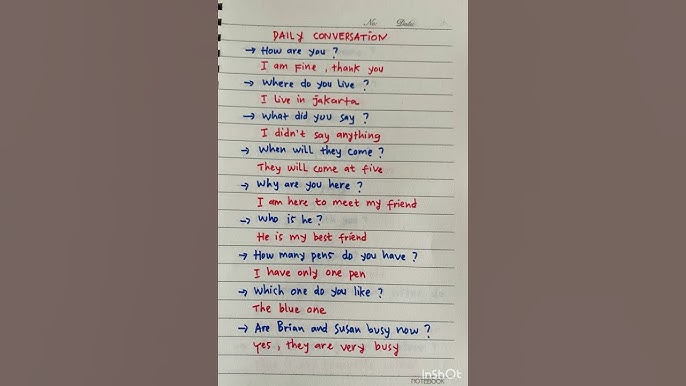 No: Date:
DAILY CONVERSATION
→ How are you ?
I am Fine , thank you
→ Where do you Live ?
I live in jakarta
→ What did you say ?
I didn't say anything
→ When will they come ?
They will come at five
→ Why are you here ?
I am here to meet my friend
→ Who is he ?
He is my best friend
→ How many pens do you have ?
I have only one pen
→ Which one do you like ?
The blue one
→ Are Brian and Susan busy now ?
Yes , they are very busy
InShOt
NOTEBOOK